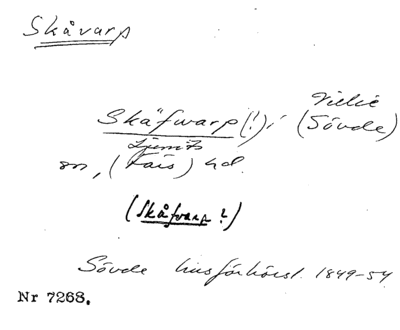 Skåvarp
Skäfwarp (!) i (Sövde)
Ljunits
sn, (Fårs) hd.
(Skåfvarp?)
Sövde husförhörsl. 1849-54
Nr 7268.